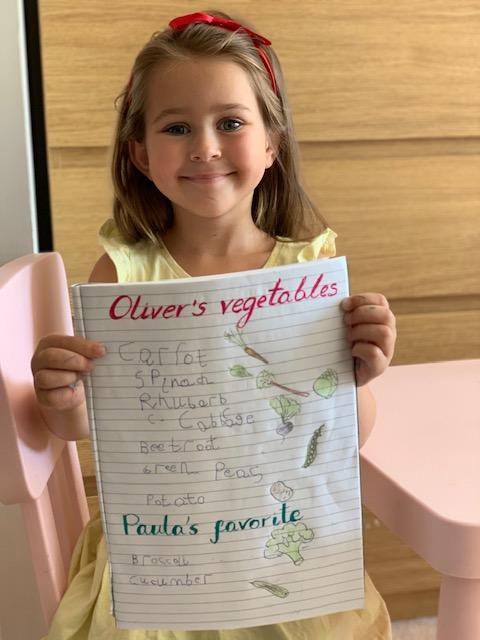 Oliver's vegetables
Carrot
Spinach
Rhubarb
c- Cabbage
Beetroot
Green Peas
Potato
Paula's favorite
Broccoli
Cucumber